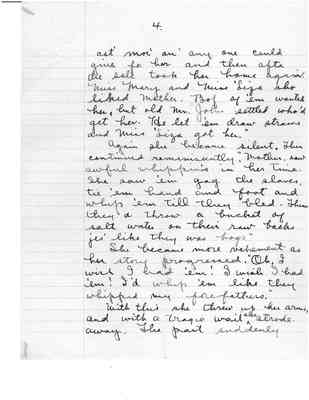 4.
ast' moi' an' any one could
give fo her and then afte
the sale took her home again.
Miss Mary and Miss 'Liza who
liked Mother. Bof of 'em wanted
her, but old Mr. John settled who'd
get her. He let 'em draw straws
and Miss 'Liza got her."
Again she became silent. Then
continued reminiscently: "Mother, saw
awful whippin's in her time.
She saw 'em gag the slaves,
tie 'em hand and foot and
whip 'em till they bled. Then
they'd throw a bucket of
salt water on their raw backs
jes' like they was hogs".
She became more vehement as
her story progressed. "Oh, I
wish I had 'em! I wish I had
'em! I'd whip 'em like they
whipped my forefathers."
With this she threw up her arms,
and with a tragic wail she strode
away. The past suddenly